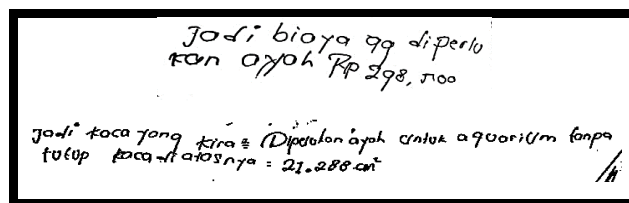 Jadi biaya yg diperlu
kan ayah Rp 298, 500
Jadi kaca yang kira² Diperlukan ayah untuk aquarium tanpa
tutup kaca di atasnya = 21.288 cm²